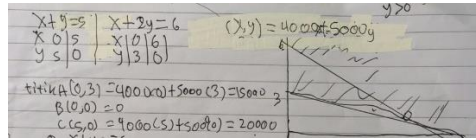 y>0
x+y=5 | x+2y=6
x | 0 | 5 | x | 0 | 6
y | 5 | 0 | y | 3 | 0
(x,y) = 4000x+5000y
titik A(0,3) = 4000(0)+5000(3)=15000
B(0,0) = 0
C(5,0) = 4000(5)+5000(0) = 20000
3